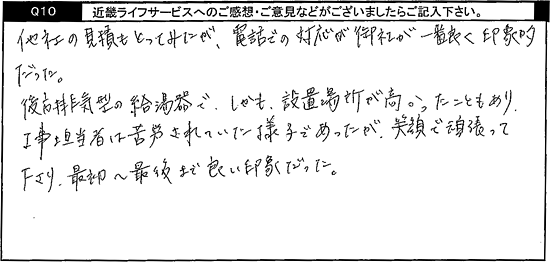 Q10 近畿ライフサービスへのご感想・ご意見などがございましたらご記入下さい。
他社の見積もとってみたが、電話での対応が御社が一番良く印象的
だった。
後方排気型の給湯器で、しかも、設置場所が高かったこともあり、
工事担当者は苦労されていた様子であったが、笑顔で頑張って
下さり、最初〜最後まで良い印象だった。